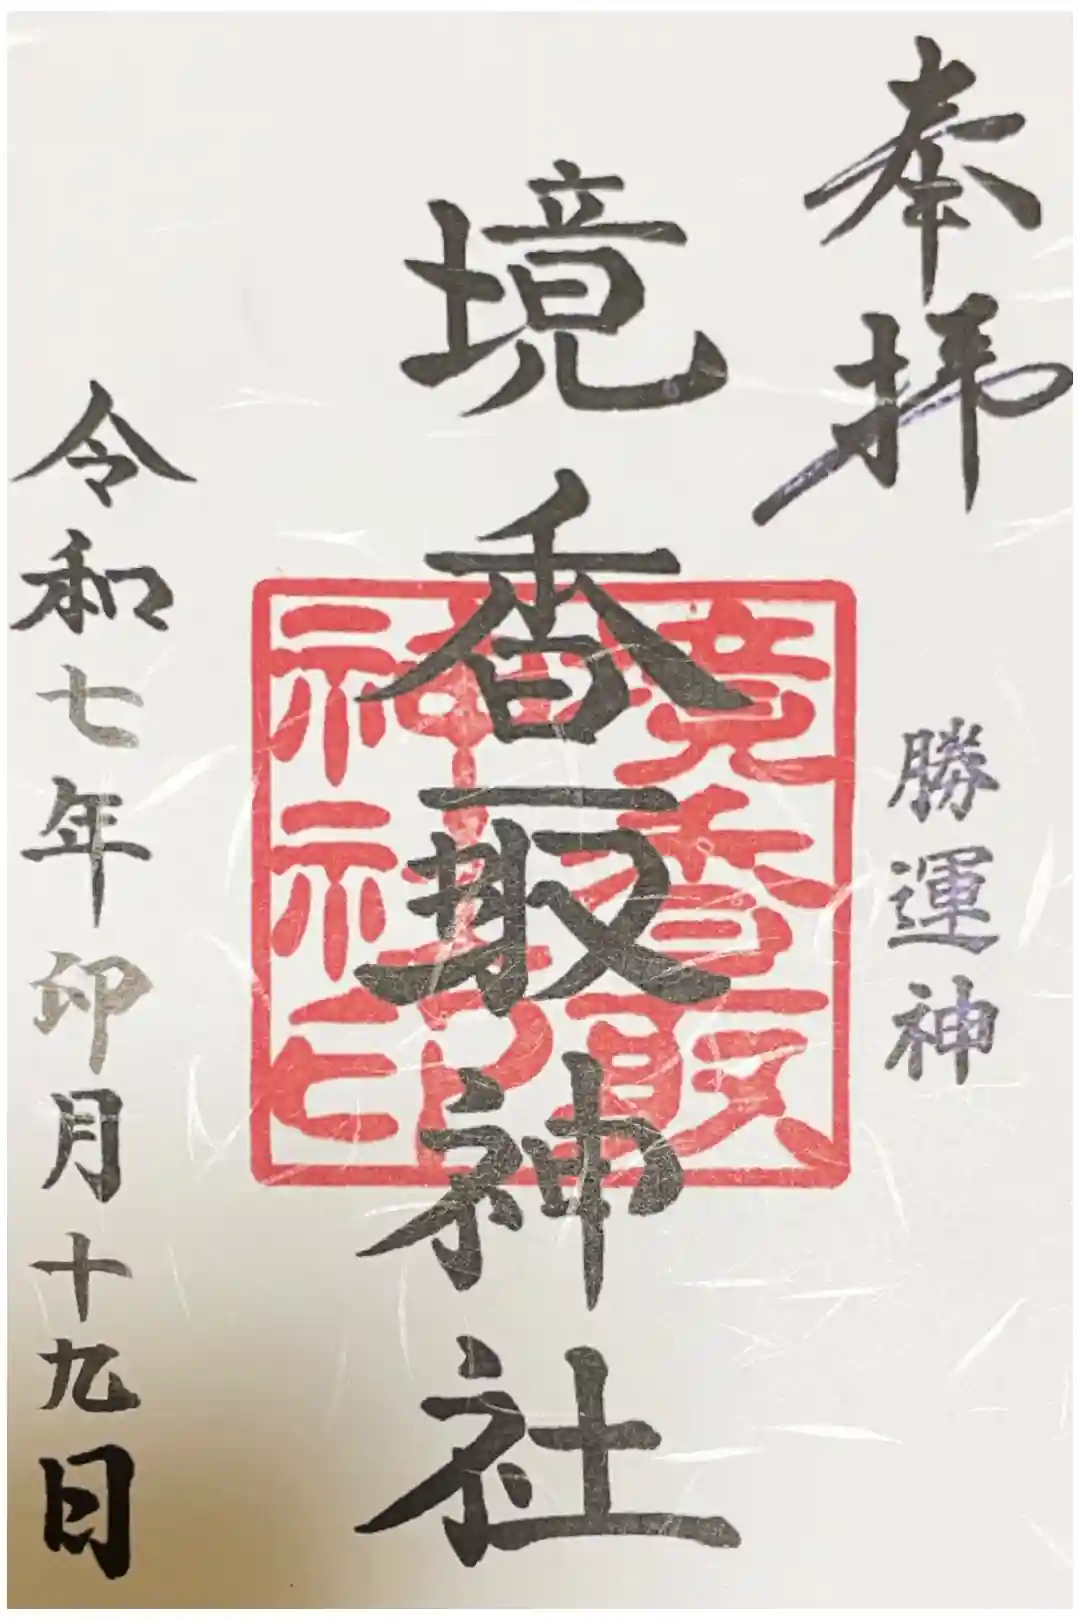 奉拝
勝運神
境香取神社
境香取
神社印
令和七年卯月十九日